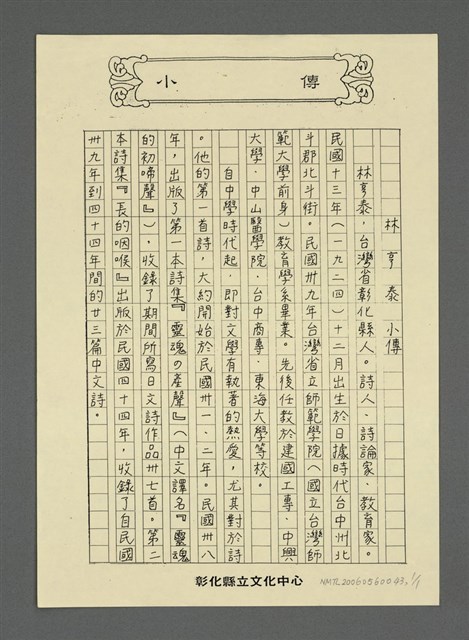 小傳
林亨泰小傳
林亨泰，台灣省彰化縣人。詩人、詩論家、教育家。
民國十三年（一九二四）十二月出生於日據時代台中州北
斗郡北斗街。民國卅九年台灣省立師範學院（國立台灣師
範大學前身）教育學系畢業。先後任教於建國工專、中興
大學、中山醫學院、台中商專、東海大學等校。
自中學時代起，即對文學有執著的熱愛，尤其對於詩
。他的第一首詩，大約開始於民國卅一、二年。民國卅八
年，出版了第一本詩集『靈魂の產聲』（中文譯名『靈魂
的初啼聲』），收錄了期間所寫日文詩作品卅七首。第二
本詩集『長的咽喉』出版於民國四十四年，收錄了自民國
卅九年到四十四年間的廿三篇中文詩。
彰化縣立文化中心
NMTL20060560043, 1/1